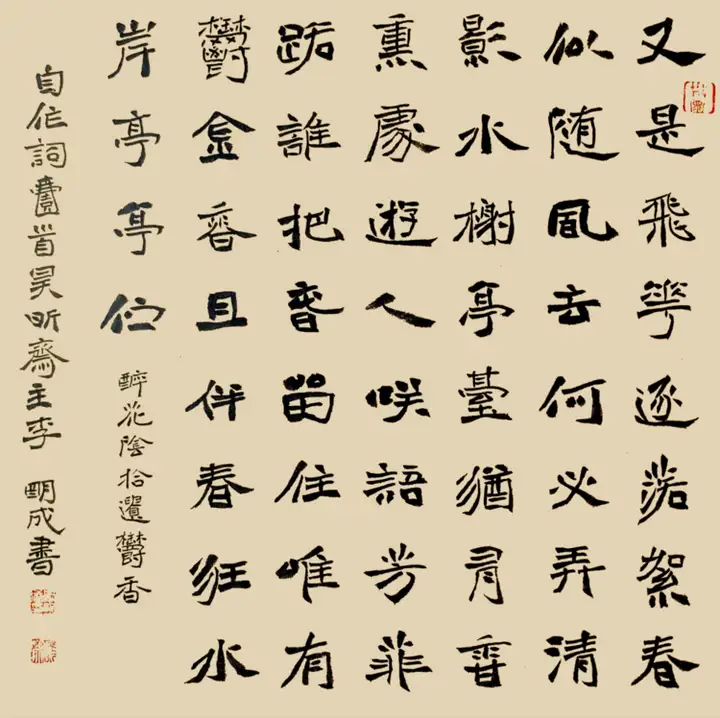 又是飛花逐落絮春
似随風去何必弄清
影水榭亭臺猶有香
熏處遊人咲語芳菲
路誰把香留住唯有
鬱金香且伴春狂水
岸亭亭伫
醉花陰拾遺鬱香
自作詞壹首昊昕齋主李明成書